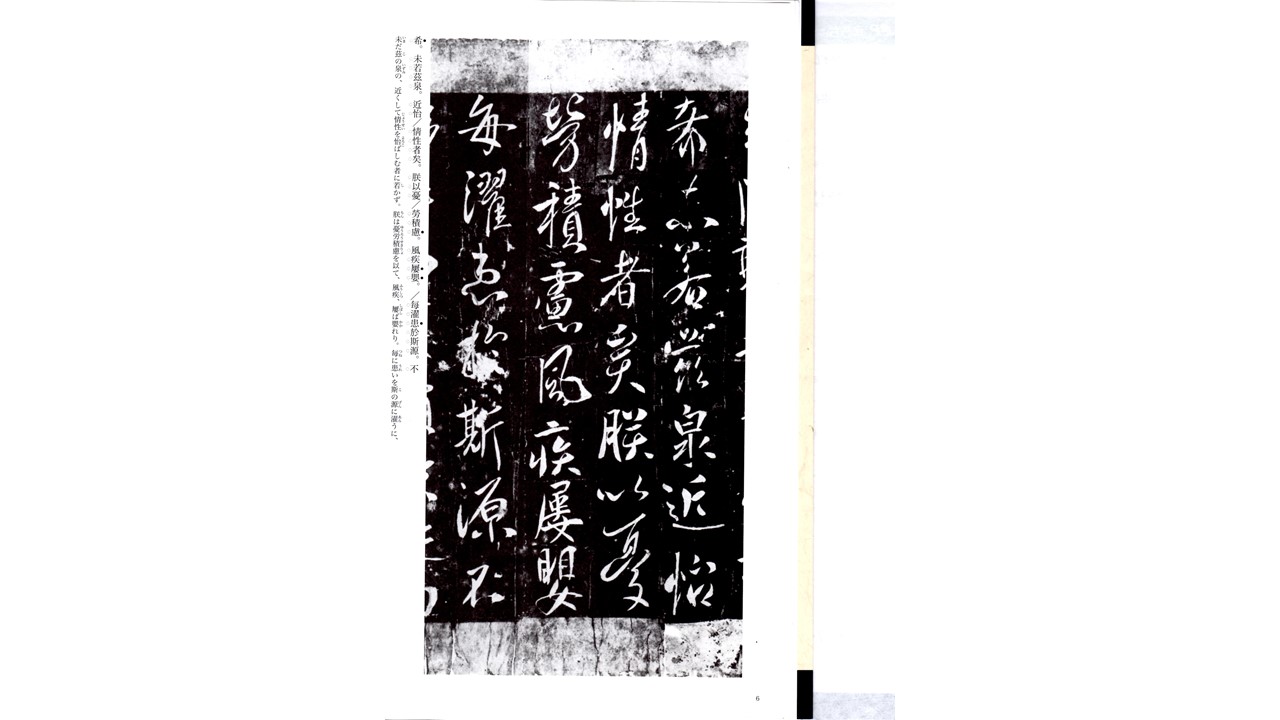 希未若茲泉近怡
情性者矣朕以憂
勞積慮風疾屢嬰
每濯患於斯源不
希。未若茲泉。近怡／情性者矣。朕以憂／勞積慮。風疾屢嬰。／每濯患於斯源。不
未だ茲の泉の、近くして情性を怡ばしむ者に若かず。朕は憂労積慮を以て、風疾、屢ば嬰れり。每に患いを斯の源に濯うに、
6